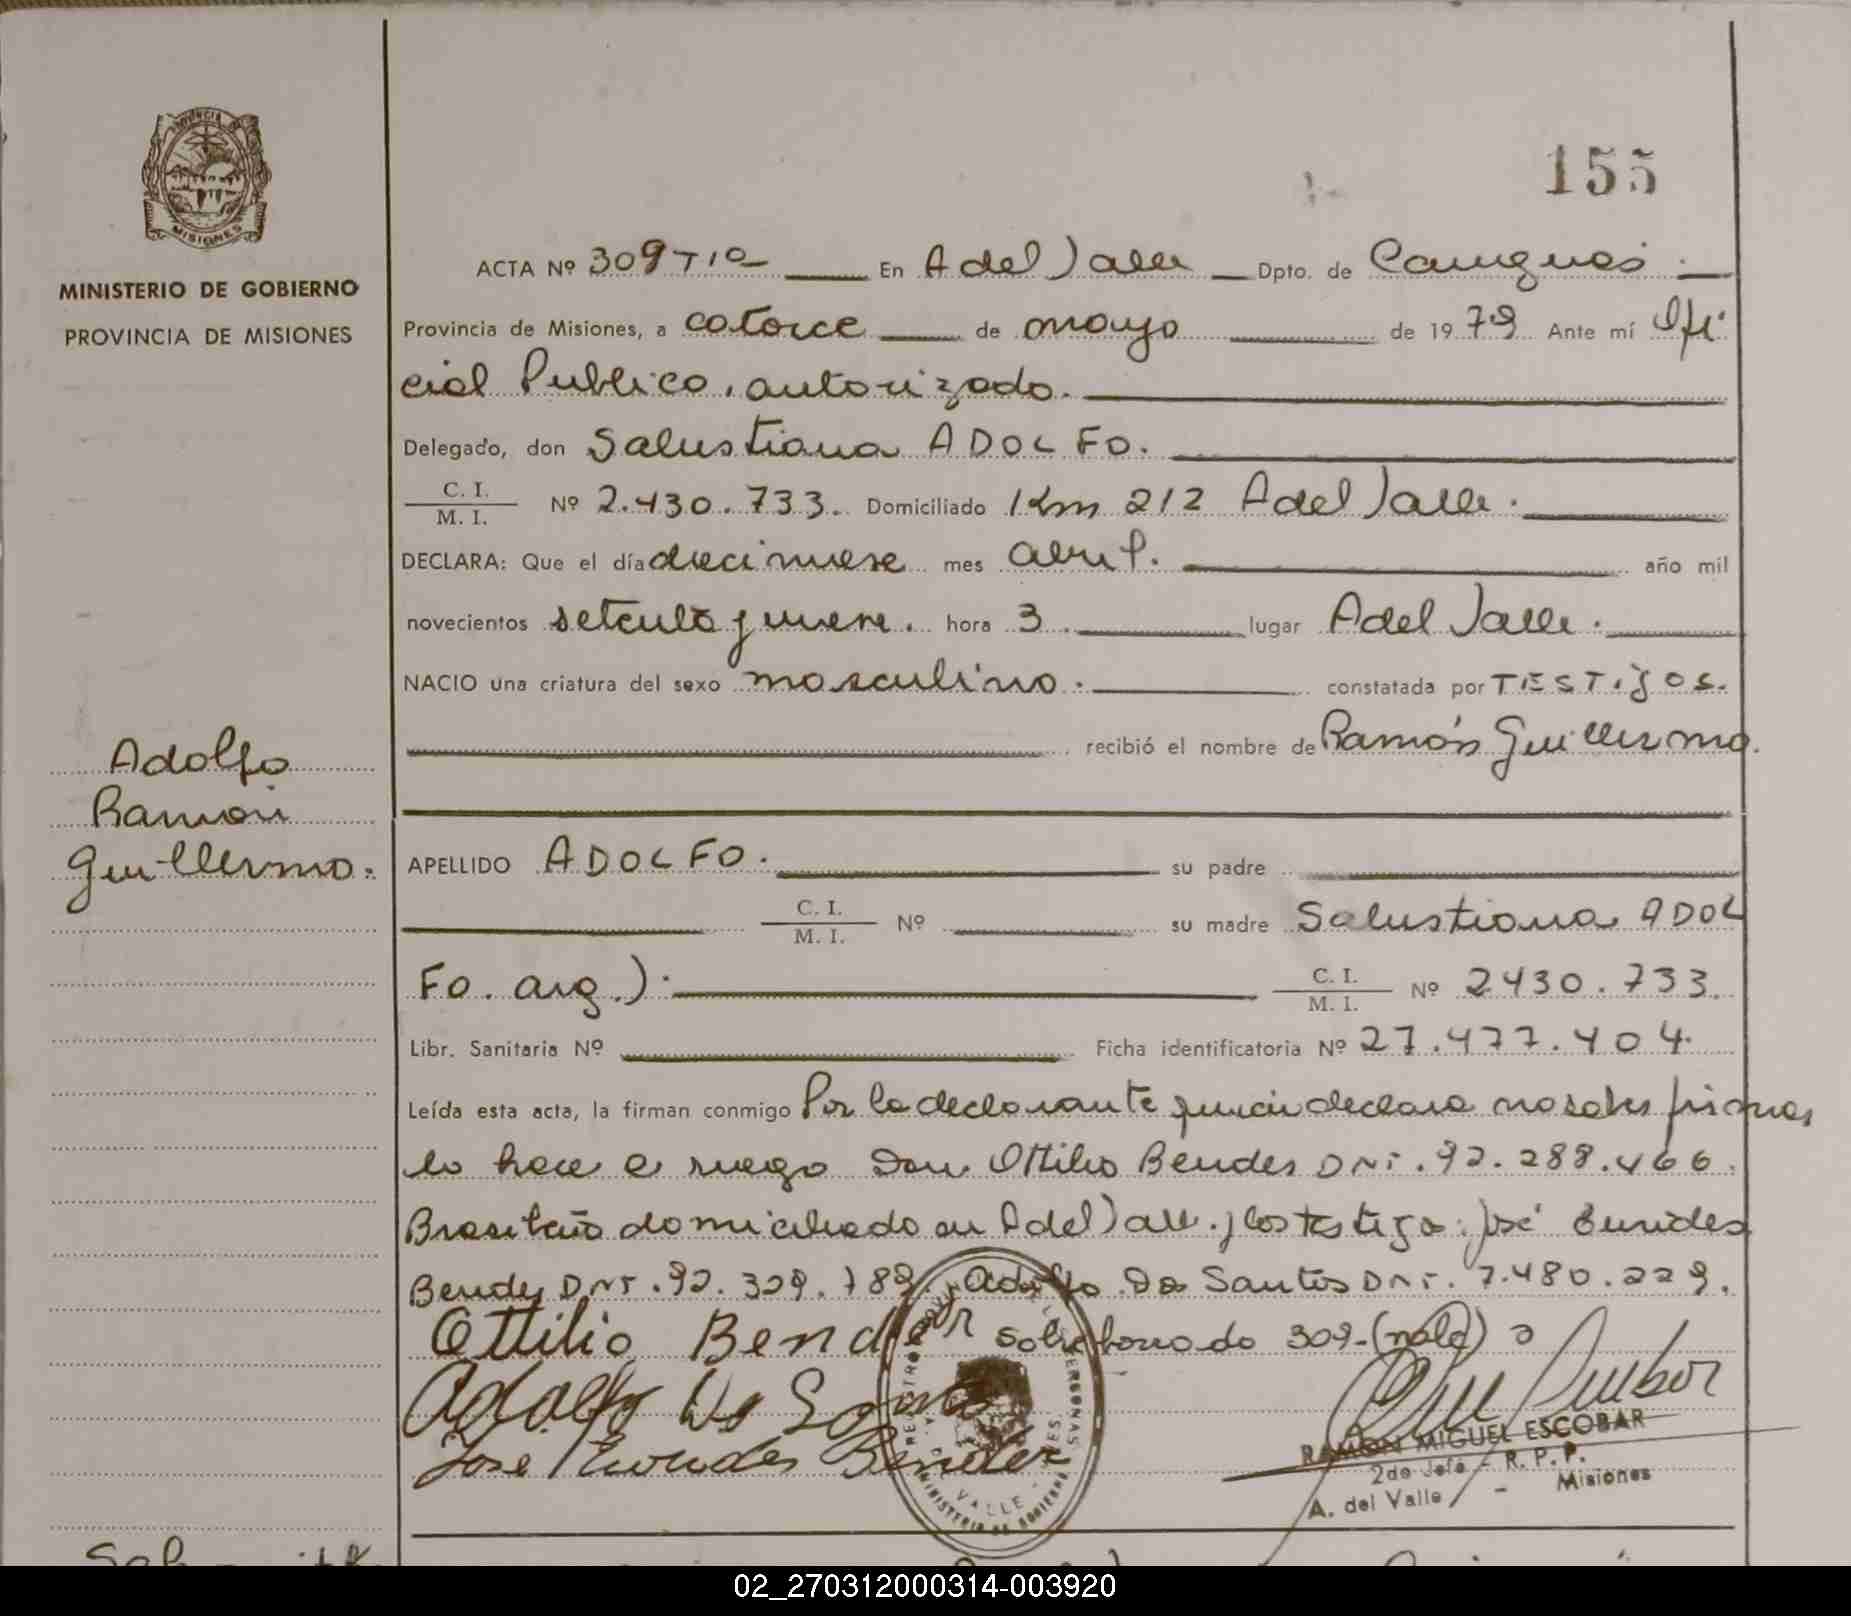 PROVINCIA DE
MISIONES
MINISTERIO DE GOBIERNO
PROVINCIA DE MISIONES
155
ACTA Nº 309 Tº En A del Valle Dpto. de Cainguas.
Provincia de Misiones, a catorce de mayo de 1979 Ante mí Ofi
cial Publico, autorizado.
Delegado, don Salustiana ADOLFO.
C. I. / M. I. Nº 2.430.733. Domiciliado Km 212 A del Valle.
DECLARA: Que el día diecinueve mes abril. año mil
novecientos setenta y nueve. hora 3 lugar A del Valle.
NACIO una criatura del sexo masculino. constatada por TESTIGOS.
recibió el nombre de Ramón Guillermo.
Adolfo
Ramón
Guillermo.
APELLIDO ADOLFO. su padre
C. I. / M. I. Nº su madre Salustiana ADOL
FO. arg.). C. I. / M. I. Nº 2430.733.
Libr. Sanitaria Nº Ficha identificatoria Nº 27.477.404.
Leída esta acta, la firman conmigo Por la declarante quien declara no saber firmar,
lo hace a ruego Don Ottilio Bender DNI. 92.288.466.
Brasileño domiciliado en A del Valle. y los testigos: José Eurides
Bender DNI. 92.329.789, Adolfo Dos Santos DNI. 7.480.229.
Ottilio Bender Sobreborrado 309-(vale)
Adolfo Do Santos
Jose Eurides Bender
RAMON MIGUEL ESCOBAR
2do Jefe - R. P. P.
A. del Valle - Misiones
VALLE
MINISTERIO DE GOBIERNO
02_270312000314-003920